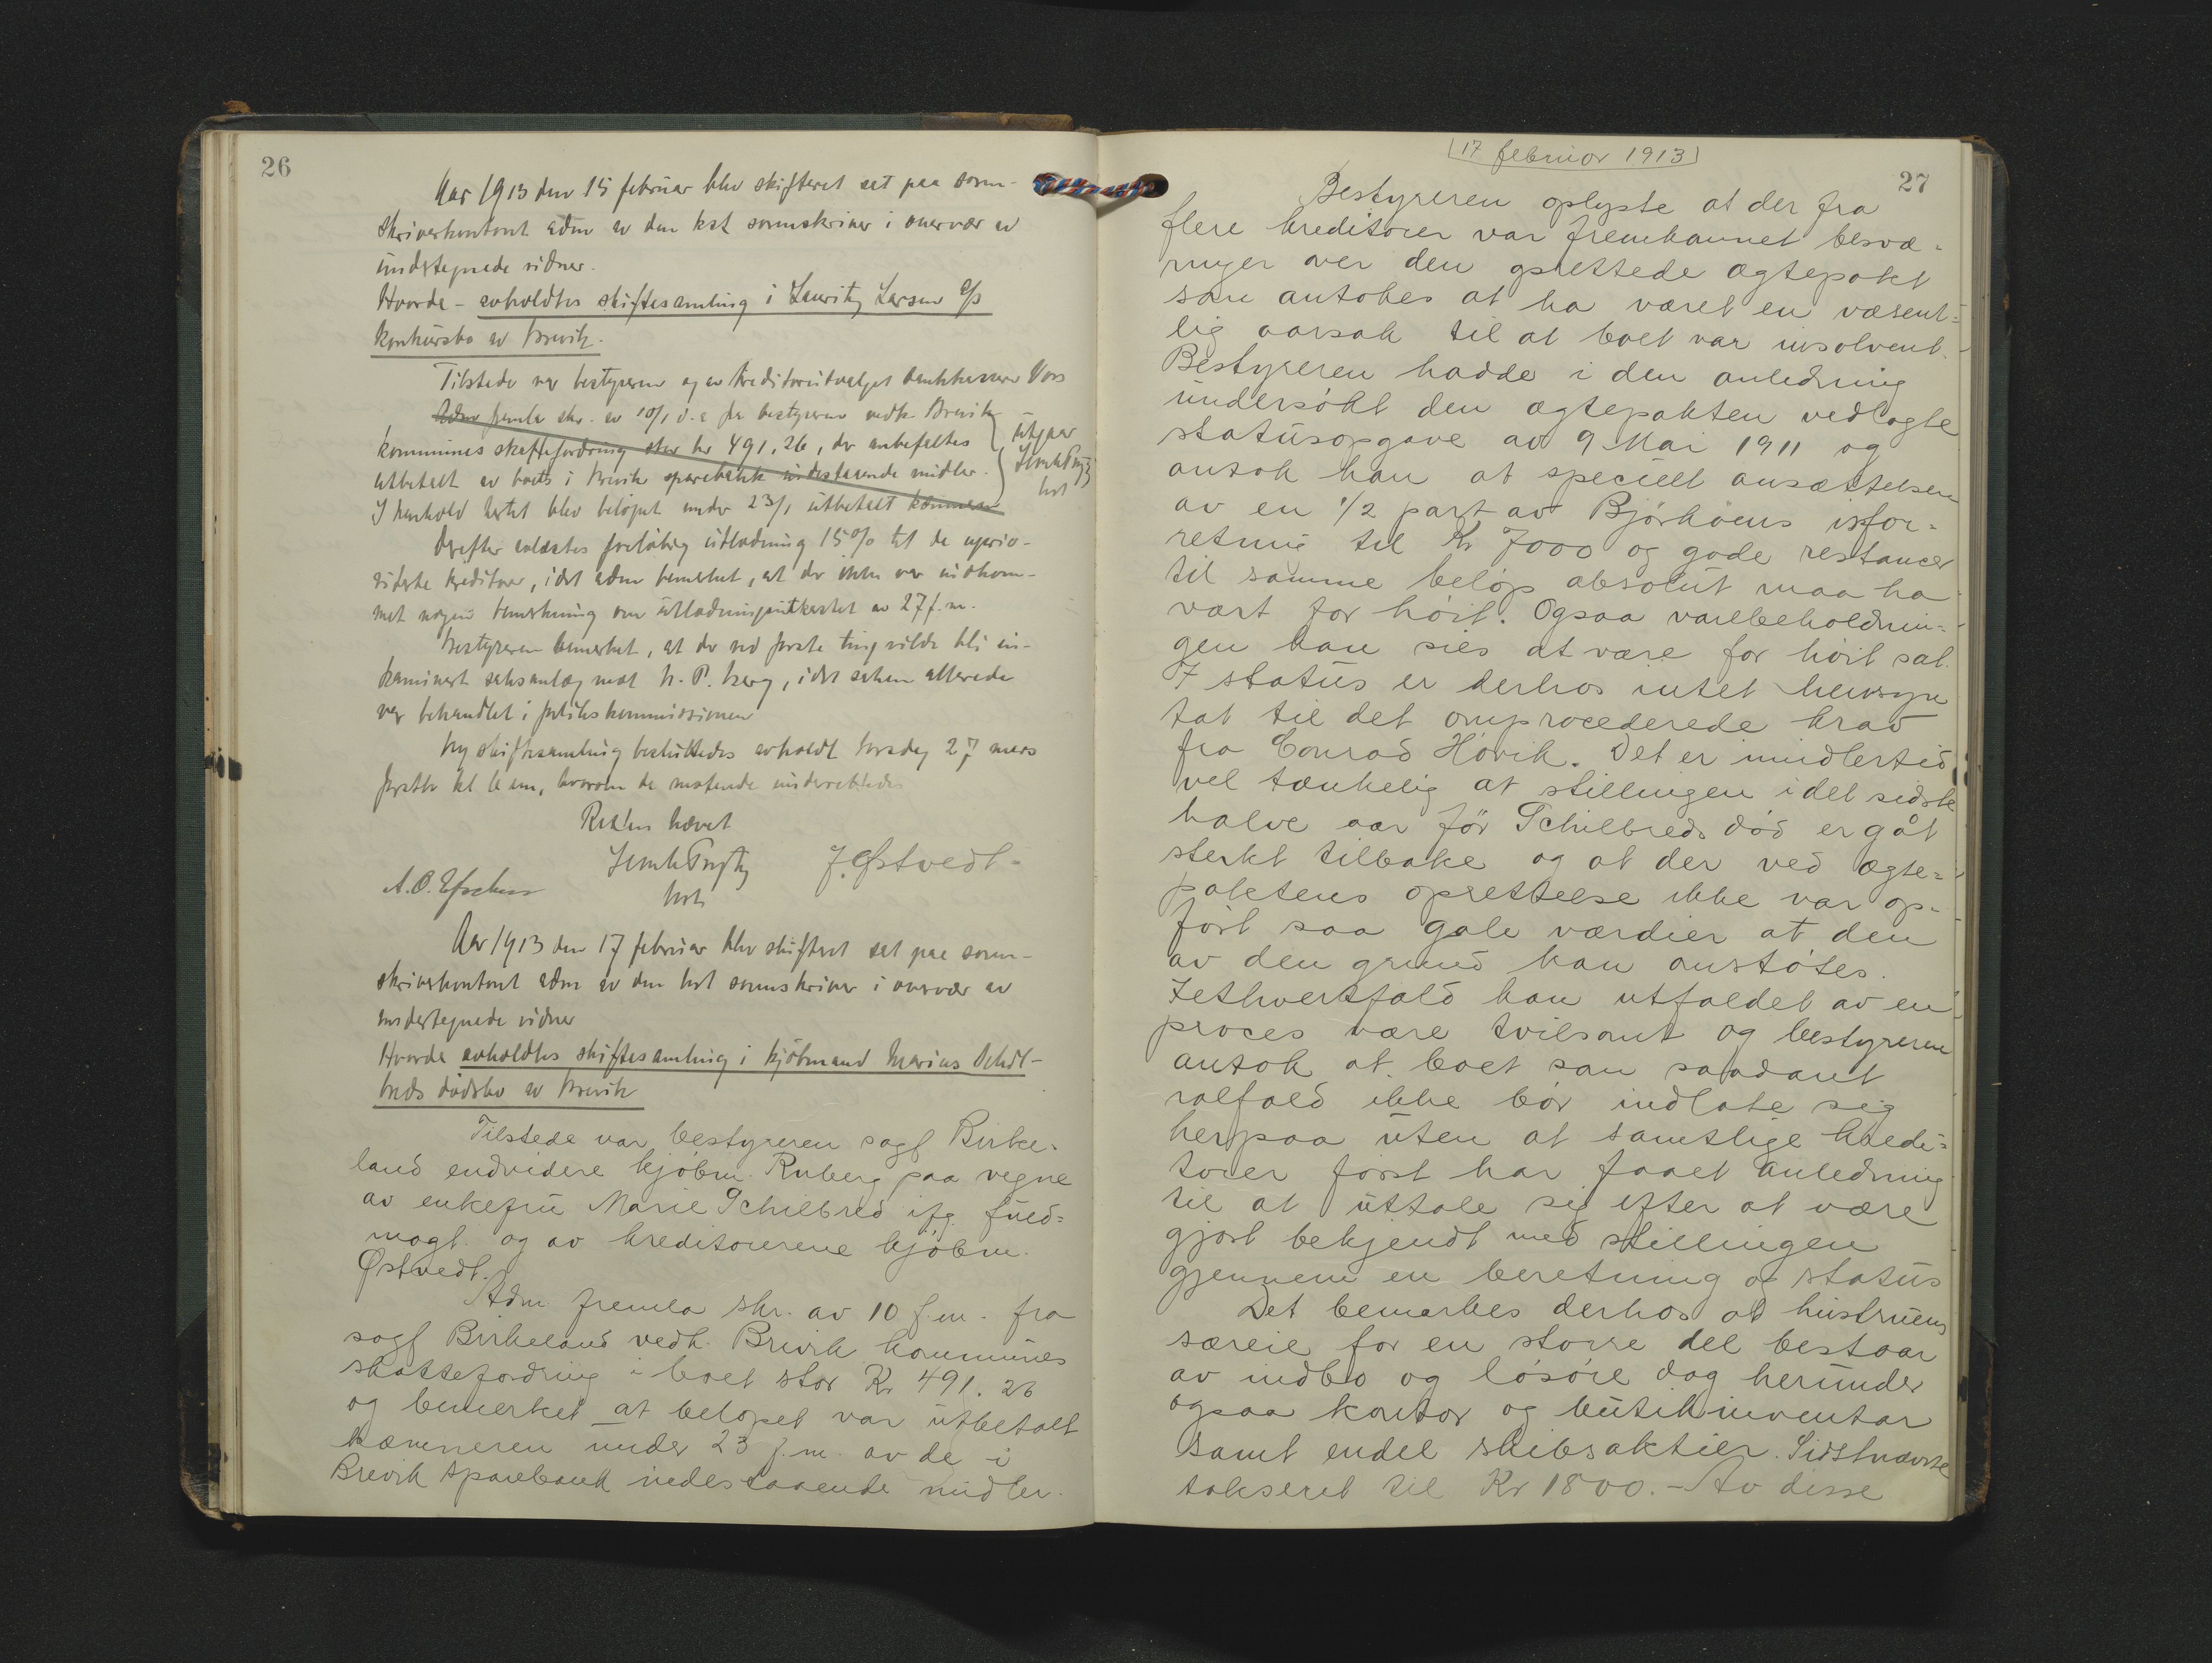 26
Aar 1913 den 15 februar blev skifteret sat paa soren-
skriverkontoret adm av den kst sorenskriver i overvær av
undertegnede vidner.
Hvorda - avholdtes skiftesamling i Lauritz Larsen
konkursbo av Brevik.
Tilstede var bestyreren og av kreditorutvalget bankkasserer Vors
Adm fremla skr. av 10/1 d.a fra bestyreren vedk. Brevik
kommunes skattefordring stor kr 491.26, der anbefaltes
utbetalt av boets i Brevik sparebank indestaaende midler.
I henhold hertil blev beløpet under 23/1 utbetalt kæmneren
utgaar
kst
Derefter avholdtes foreløbig utlodning 15% til de uprio-
riterte kreditorer, idet adm bemerket, at der ikke var indkom-
met nogen bemerkning om utlodningsutkastet av 27 f.m.
Bestyreren bemerket, at der ved første ting vilde bli in-
kaminert saksanlæg mot H. P. Berg, idet saken allerede
var behandlet i forlikskommissionen
Ny skiftesamling besluttedes avholdt torsdag 27 mars
førstk kl 6 em, hvorom de møtende underrettedes
Retten hævet
J. Østvedt-
A. O.
kst
Aar 1913 den 17 februar blev skifteret sat paa soren-
skriverkontoret adm av den kst sorenskriver i overvær av
undertegnede vidner
Hvorda avholdtes skiftesamling i kjøbmand Marius Schil-
breds dødsbo av Brevik
Tilstede var bestyreren sagf Birke-
land endvidere kjøbm. Ruberg paa vegne
av enkefru Marie Schilbred ifg. fuld=
magt. og av kreditorerene kjøbm.
Østvedt.
Adm fremla skr. av 10 f.m. fra
sagf Birkeland vedk. Brevik kommunes
skattefordring i boet stor Kr. 491.26
og bemerket at beløpet var utbetalt
kæmneren under 23 f.m. av de i
Brevik Sparebank indestaaende midler.
17 februar 1913
27
Bestyreren oplyste at der fra
flere kreditorer var fremkommet besvæ-
ringer over den oprettede ægtepakt
som antokes at ha været en væsent=
lig aarsak til at boet var insolvent.
Bestyreren hadde i den anledning
undersøkt den ægtepakten vedlagte
statusopgave av 9 Mai 1911 og
antok han at specielt ansættelsen
av en 1/2 part av Bjørkøens isfor=
retning til Kr 7000 og gode restancer
til samme beløp absolut maa ha
vært for høit. Ogsaa varebeholdnin=
gen kan sies at være for høit sat.
I status er derhos intet hensyn
tat til det omprocederede krav
fra Conrad Høvik. Det er imidlertid
vel tænkelig at stillingen i det sidste
halve aar før Schilbreds død er gåt
sterkt tilbake og at der ved ægte=
paktens oprettelse ikke var op-
ført saa gale værdier at den
av den grund kan anstøtes.
Iethvertfald kan utfaldet av en
proces være tvilsomt og bestyreren
antok at boet som saadant
ialfald ikke bør indlate sig
herpaa uten at samtlige kredi=
torer først har faaet anledning
til at uttale sig efter at være
gjort bekjendt med stillingen
gjennem en beretning og status
Det bemerkes derhos at hustruens
særeie for en større del bestaar
av indbo og løsøre dog herunder
ogsaa kontor og butikinventar
samt endel skibsaktier. Sidstnævnte
takseret til Kr 1800.- Av disse